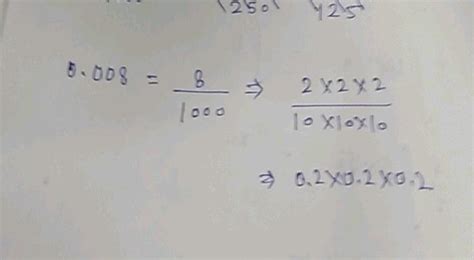 1250 425
0.008 = 8/1000 ⇒ 2×2×2/10×10×10
⇒ 0.2×0.2×0.2